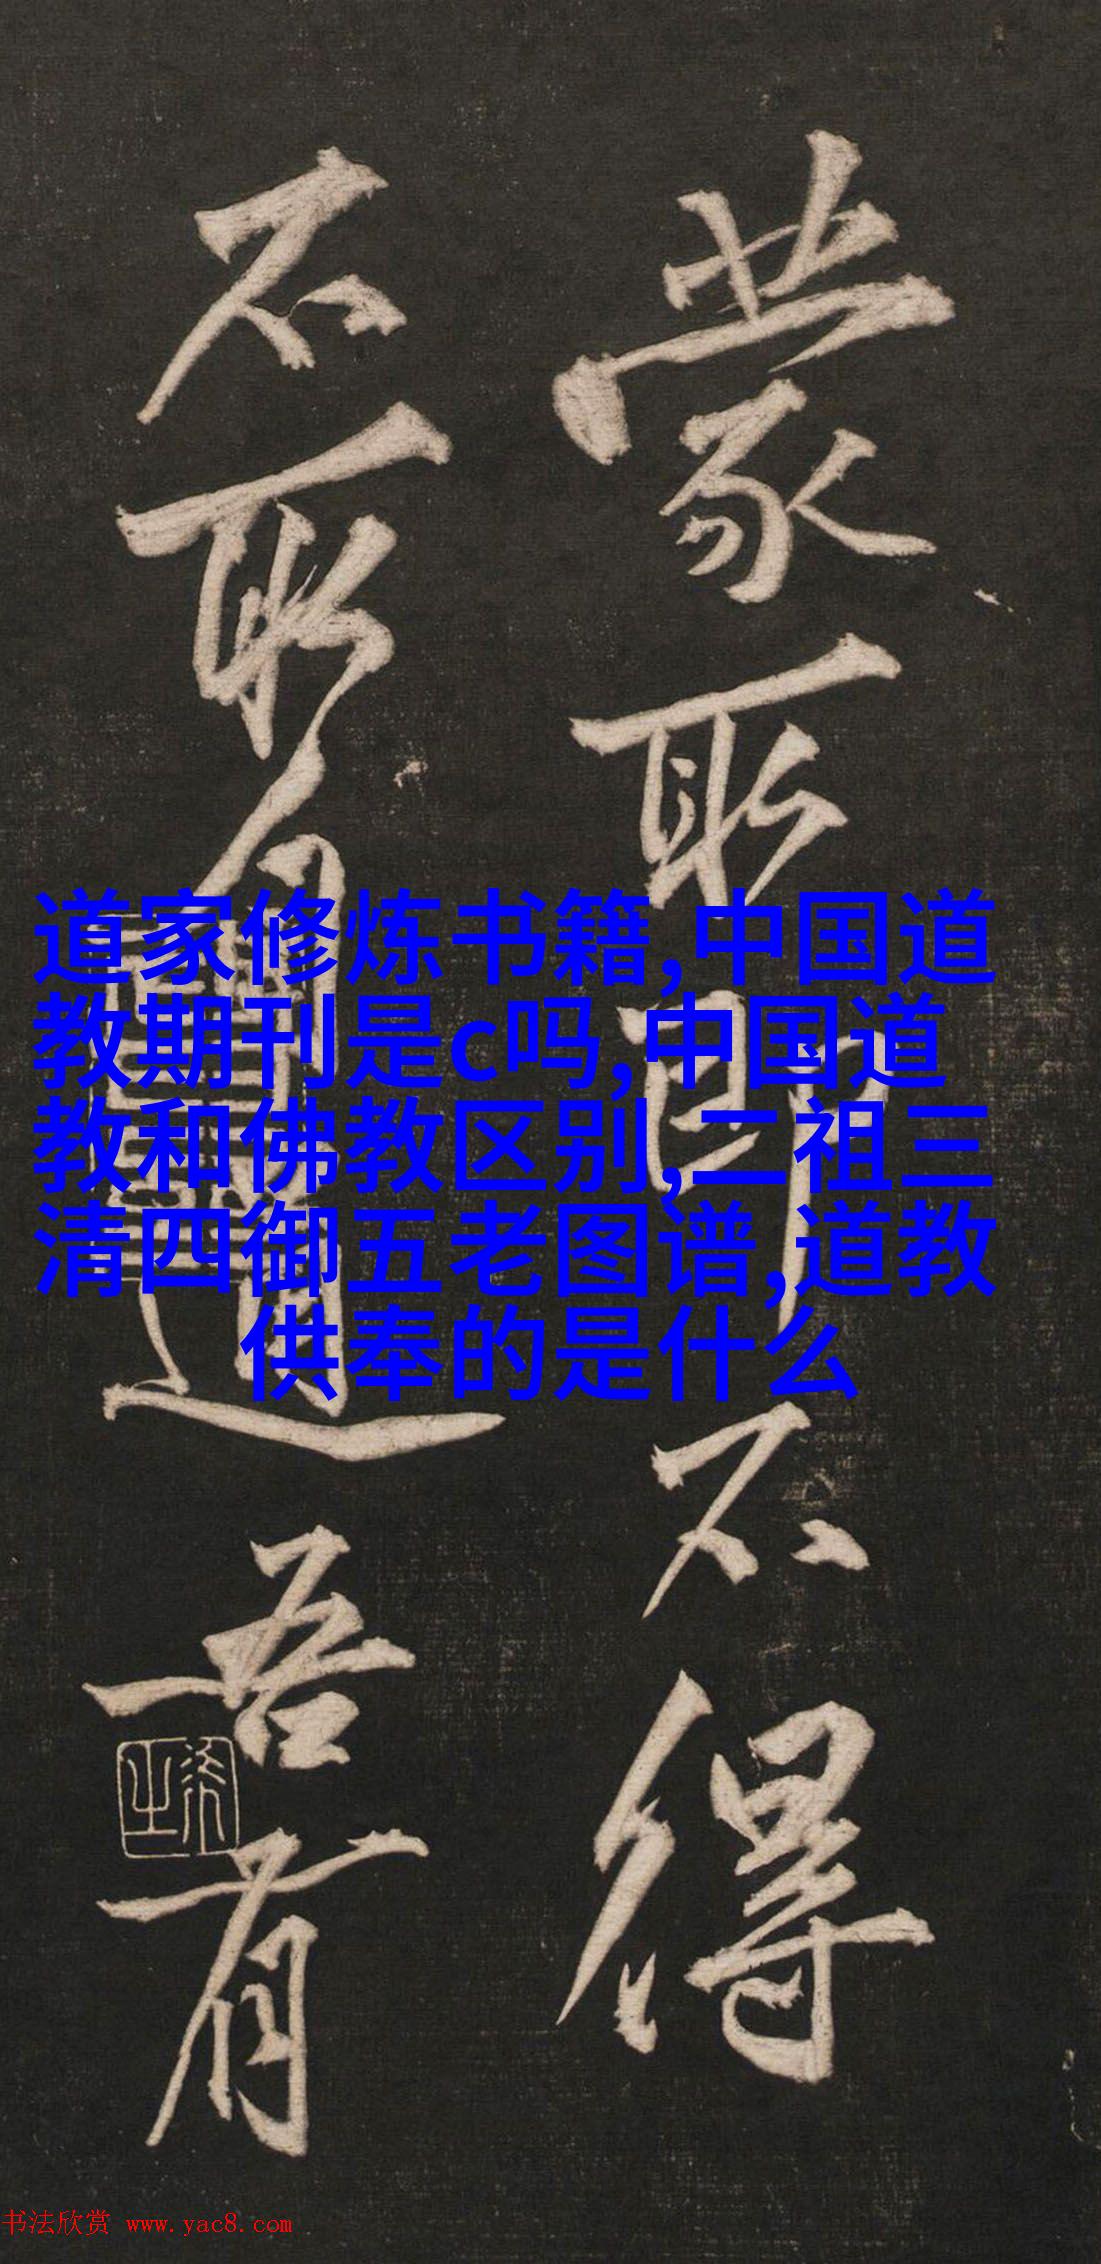 蒙即不得
不道吾有
道家修炼书籍,中国道
教期刊是c吗,中国道
教和佛教区别,二祖三
清四御五老图谱,道教
供奉的是什么
书法欣赏 www.yac8.com